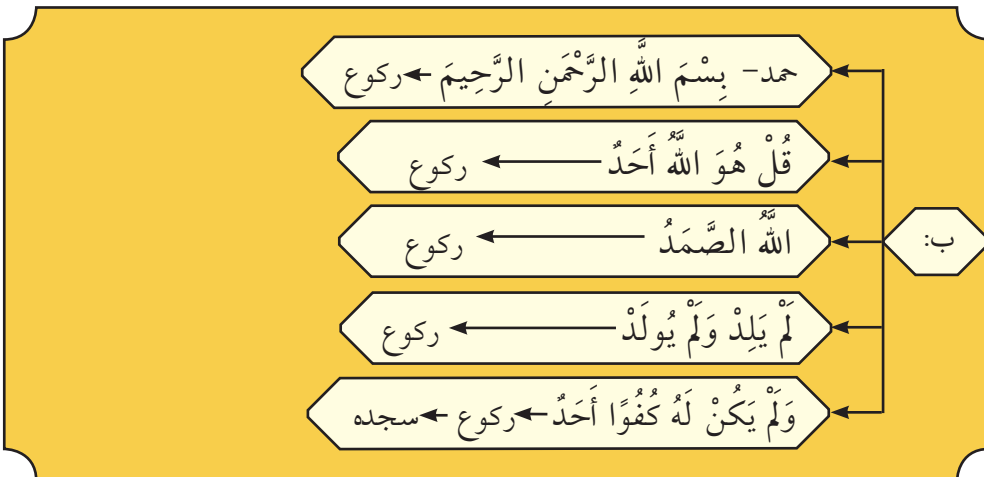 ب:
حمد- بِسْمَ اللَّهِ الرَّحْمَنِ الرَّحِيمَ ← ركوع
قُلْ هُوَ اللَّهُ أَحَدٌ ← ركوع
اللَّهُ الصَّمَدُ ← ركوع
لَمْ يَلِدْ وَلَمْ يُولَدْ ← ركوع
وَلَمْ يَكُنْ لَهُ كُفُوًا أَحَدٌ ← ركوع ← سجده